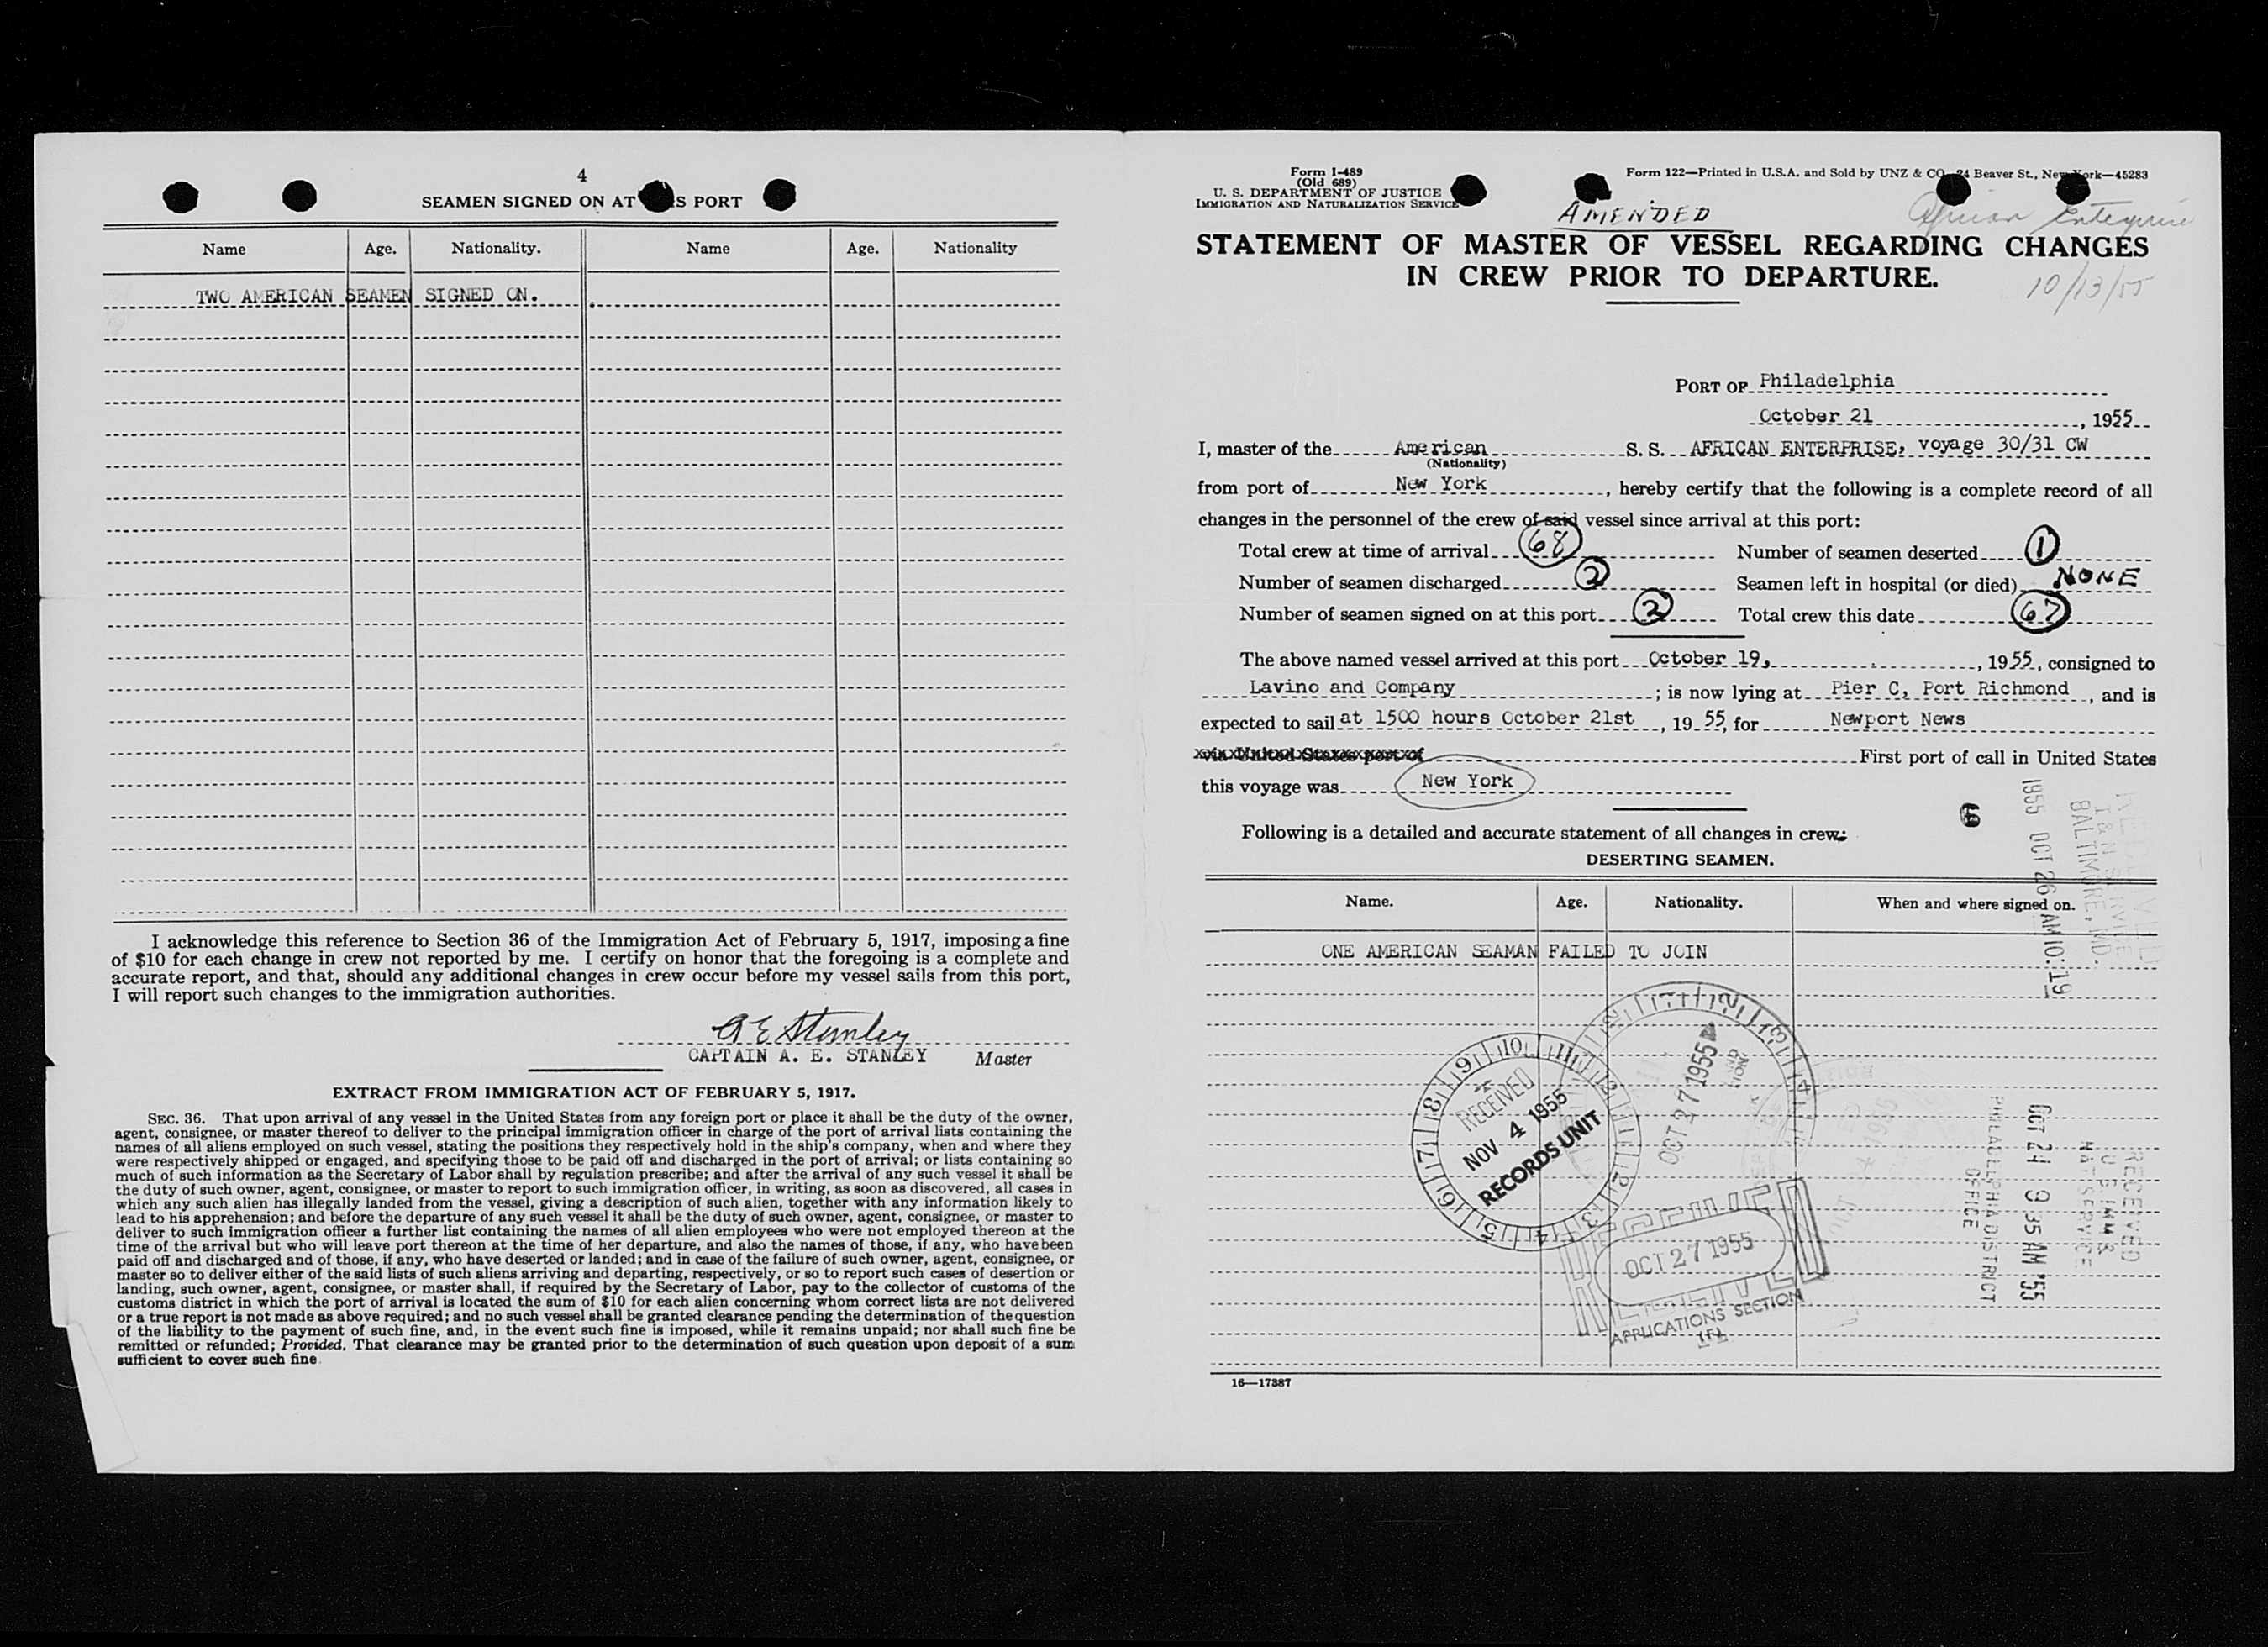 4
SEAMEN SIGNED ON AT S PORT
Name Age. Nationality. Name Age. Nationality
TWO AMERICAN SEAMEN SIGNED ON.
I acknowledge this reference to Section 36 of the Immigration Act of February 5, 1917, imposing a fine
of $10 for each change in crew not reported by me. I certify on honor that the foregoing is a complete and
accurate report, and that, should any additional changes in crew occur before my vessel sails from this port,
I will report such changes to the immigration authorities.
A E Stanley
CAPTAIN A. E. STANLEY Master
EXTRACT FROM IMMIGRATION ACT OF FEBRUARY 5, 1917.
SEC. 36. That upon arrival of any vessel in the United States from any foreign port or place it shall be the duty of the owner,
agent, consignee, or master thereof to deliver to the principal immigration officer in charge of the port of arrival lists containing the
names of all aliens employed on such vessel, stating the positions they respectively hold in the ship's company, when and where they
were respectively shipped or engaged, and specifying those to be paid off and discharged in the port of arrival; or lists containing so
much of such information as the Secretary of Labor shall by regulation prescribe; and after the arrival of any such vessel it shall be
the duty of such owner, agent, consignee, or master to report to such immigration officer, in writing, as soon as discovered, all cases in
which any such alien has illegally landed from the vessel, giving a description of such alien, together with any information likely to
lead to his apprehension; and before the departure of any such vessel it shall be the duty of such owner, agent, consignee, or master to
deliver to such immigration officer a further list containing the names of all alien employees who were not employed thereon at the
time of the arrival but who will leave port thereon at the time of her departure, and also the names of those, if any, who have been
paid off and discharged and of those, if any, who have deserted or landed; and in case of the failure of such owner, agent, consignee, or
master so to deliver either of the said lists of such aliens arriving and departing, respectively, or so to report such cases of desertion or
landing, such owner, agent, consignee, or master shall, if required by the Secretary of Labor, pay to the collector of customs of the
customs district in which the port of arrival is located the sum of $10 for each alien concerning whom correct lists are not delivered
or a true report is not made as above required; and no such vessel shall be granted clearance pending the determination of the question
of the liability to the payment of such fine, and, in the event such fine is imposed, while it remains unpaid; nor shall such fine be
remitted or refunded; Provided, That clearance may be granted prior to the determination of such question upon deposit of a sum
sufficient to cover such fine
Form I-489
(Old 689)
U. S. DEPARTMENT OF JUSTICE
IMMIGRATION AND NATURALIZATION SERVICE
Form 122—Printed in U.S.A. and Sold by UNZ & CO. 24 Beaver St., New York—45283
AMENDED
African Enterprise
STATEMENT OF MASTER OF VESSEL REGARDING CHANGES
IN CREW PRIOR TO DEPARTURE.
10/13/55
PORT OF Philadelphia
October 21, 1955
I, master of the American S. S. AFRICAN ENTERPRISE, voyage 30/31 CW
(Nationality)
from port of New York, hereby certify that the following is a complete record of all
changes in the personnel of the crew of said vessel since arrival at this port:
Total crew at time of arrival 68 Number of seamen deserted 1
Number of seamen discharged 2 Seamen left in hospital (or died) NONE
Number of seamen signed on at this port 2 Total crew this date 67
The above named vessel arrived at this port October 19, 1955, consigned to
Lavino and Company; is now lying at Pier C, Port Richmond, and is
expected to sail at 1500 hours October 21st, 19 55, for Newport News
via United States port of First port of call in United States
this voyage was New York
Following is a detailed and accurate statement of all changes in crew:
DESERTING SEAMEN.
Name. Age. Nationality. When and where signed on.
ONE AMERICAN SEAMAN FAILED TO JOIN
1955 OCT 26 AM 10:19
BALTIMORE, MD.
9 10 11 12 1 2 3 4 5 6 7 8
RECEIVED
NOV 4 1955
RECORDS UNIT
OCT 27 1955
RECEIVED
OCT 27 1955
RECEIVED
APPLICATIONS SECTION
RECEIVED
U S IMM &
NAT SERVICE
OCT 24 9 35 AM '55
PHILADELPHIA DISTRICT
OFFICE
16—17387